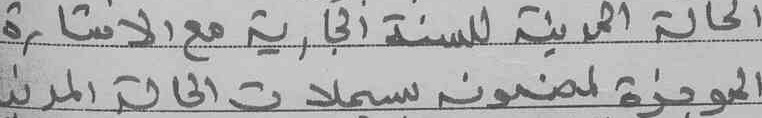 الحالة المدنية للسنة الجارية مع الإشارة
الموجزة لمضمون سجلات الحالة المدنية